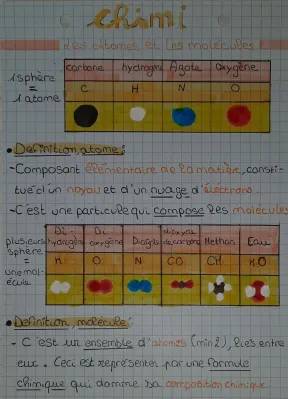 chimi
Les atomes et les molécules
carbone hydrogène Azote Oxygène
1 sphère
=
1 atome
C H N O
• Definition, atome:
- Composant élémentaire de la matière, consti-
tué d'un noyau et d'un nuage d'électrons.
- C'est une particule qui compose les molécules
plusieurs
sphère
=
une mol-
écule
Di-
hydrogène
Di
oxygène
Diazote
dioxyde
de carbone
Methan
Eau
H O N CO CH H2O
• Definition, molécule:
- C'est un ensemble d'atomes (min 2), liés entre
eux. Ceci est représenter par une formule
chimique qui donne sa composition chimique.